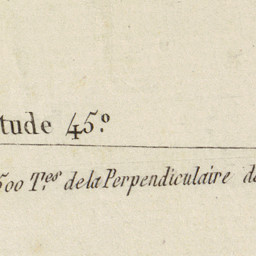 tude 45.º
500 T.res de la Perpendiculaire de